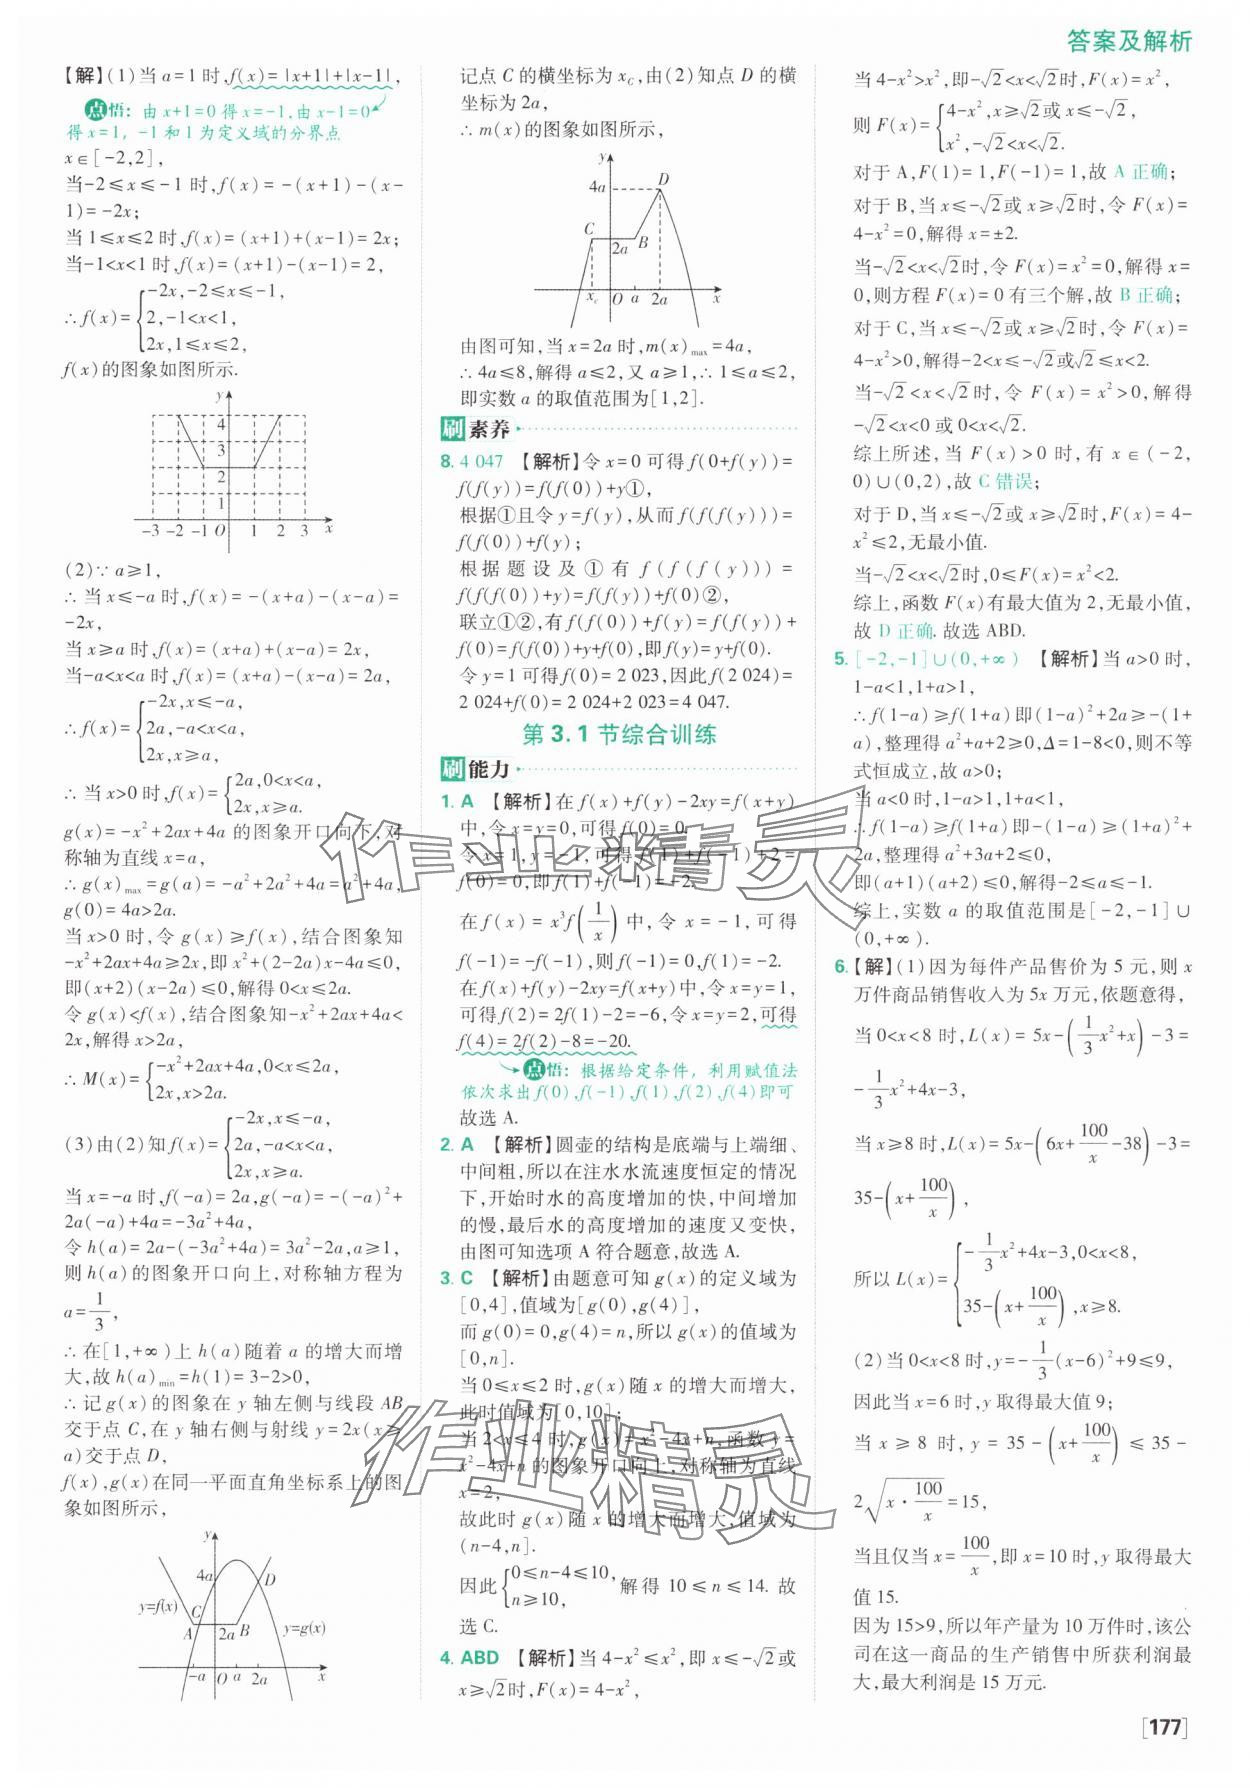 答案及解析
【解】(1)当 a=1 时,f(x)=|x+1|+|x-1|,
点悟：由 x+1=0 得 x=-1,由 x-1=0
得 x=1，-1 和 1 为定义域的分界点
x∈[-2,2],
当-2≤x≤-1 时,f(x)=-(x+1)-(x-
1)=-2x;
当 1≤x≤2 时,f(x)=(x+1)+(x-1)=2x;
当-1<x<1 时,f(x)=(x+1)-(x-1)=2,
∴f(x)={-2x,-2≤x≤-1,
2,-1<x<1,
2x,1≤x≤2,
f(x)的图象如图所示.
y
4
3
2
1
-3 -2 -1 O 1 2 3 x
(2)∵a≥1,
∴当 x≤-a 时,f(x)=-(x+a)-(x-a)=
-2x,
当 x≥a 时,f(x)=(x+a)+(x-a)=2x,
当-a<x<a 时,f(x)=(x+a)-(x-a)=2a,
∴f(x)={-2x,x≤-a,
2a,-a<x<a,
2x,x≥a,
∴当 x>0 时,f(x)={2a,0<x<a,
2x,x≥a.
g(x)=-x²+2ax+4a 的图象开口向下,对
称轴为直线 x=a,
∴g(x)max=g(a)=-a²+2a²+4a=a²+4a,
g(0)=4a>2a.
当 x>0 时,令 g(x)≥f(x),结合图象知
-x²+2ax+4a≥2x,即 x²+(2-2a)x-4a≤0,
即(x+2)(x-2a)≤0,解得 0<x≤2a.
令 g(x)<f(x),结合图象知-x²+2ax+4a<
2x,解得 x>2a,
∴M(x)={-x²+2ax+4a,0<x≤2a,
2x,x>2a.
(3)由(2)知 f(x)={-2x,x≤-a,
2a,-a<x<a,
2x,x≥a.
当 x=-a 时,f(-a)=2a,g(-a)=-(-a)²+
2a(-a)+4a=-3a²+4a,
令 h(a)=2a-(-3a²+4a)=3a²-2a,a≥1,
则 h(a)的图象开口向上,对称轴方程为
a=1/3,
∴在[1,+∞)上 h(a)随着 a 的增大而增
大,故 h(a)min=h(1)=3-2>0,
∴记 g(x)的图象在 y 轴左侧与线段 AB
交于点 C,在 y 轴右侧与射线 y=2x(x≥
a)交于点 D,
f(x),g(x)在同一平面直角坐标系上的图
象如图所示,
y
4a
D
y=f(x)
C
A 2a B y=g(x)
-a O a 2a x
记点 C 的横坐标为 xC,由(2)知点 D 的横
坐标为 2a,
∴m(x)的图象如图所示,
y
4a D
C
2a B
xc O a 2a x
由图可知,当 x=2a 时,m(x)max=4a,
∴4a≤8,解得 a≤2,又 a≥1,∴1≤a≤2,
即实数 a 的取值范围为[1,2].
刷素养
8. 4 047 【解析】令 x=0 可得 f(0+f(y))=
f(f(y))=f(f(0))+y①,
根据①且令 y=f(y),从而 f(f(f(y)))=
f(f(0))+f(y);
根据题设及①有 f(f(f(y)))=
f(f(f(0))+y)=f(f(y))+f(0)②,
联立①②,有 f(f(0))+f(y)=f(f(y))+
f(0)=f(f(0))+y+f(0),即 f(y)=y+f(0).
令 y=1 可得 f(0)=2 023,因此 f(2 024)=
2 024+f(0)=2 024+2 023=4 047.
第 3.1 节综合训练
刷能力
1. A 【解析】在 f(x)+f(y)-2xy=f(x+y)
中,令 x=y=0,可得 f(0)=0.
令 x=1,y=-1,可得 f(1)+f(-1)+2=
f(0)=0,即 f(1)+f(-1)=-2.
在 f(x)=x³f(1/x)中,令 x=-1,可得
f(-1)=-f(-1),则 f(-1)=0,f(1)=-2.
在 f(x)+f(y)-2xy=f(x+y)中,令 x=y=1,
可得 f(2)=2f(1)-2=-6,令 x=y=2,可得
f(4)=2f(2)-8=-20.
点悟：根据给定条件，利用赋值法
依次求出 f(0),f(-1),f(1),f(2),f(4)即可
故选 A.
2. A 【解析】圆壶的结构是底端与上端细、
中间粗,所以在注水水流速度恒定的情况
下,开始时水的高度增加的快,中间增加
的慢,最后水的高度增加的速度又变快,
由图可知选项 A 符合题意,故选 A.
3. C 【解析】由题意可知 g(x)的定义域为
[0,4],值域为[g(0),g(4)],
而 g(0)=0,g(4)=n,所以 g(x)的值域为
[0,n].
当 0≤x≤2 时,g(x)随 x 的增大而增大,
此时值域为[0,10];
当 2<x≤4 时,g(x)=x²-4x+n,函数 y=
x²-4x+n 的图象开口向上,对称轴为直线
x=2,
故此时 g(x)随 x 的增大而增大,值域为
(n-4,n].
因此{0≤n-4≤10,
n≥10,解得 10≤n≤14. 故
选 C.
4. ABD 【解析】当 4-x²≤x²,即 x≤-√2或
x≥√2时,F(x)=4-x²,
当 4-x²>x²,即-√2<x<√2时,F(x)=x²,
则 F(x)={4-x²,x≥√2或 x≤-√2,
x²,-√2<x<√2.
对于 A,F(1)=1,F(-1)=1,故 A 正确;
对于 B,当 x≤-√2或 x≥√2时,令 F(x)=
4-x²=0,解得 x=±2.
当-√2<x<√2时,令 F(x)=x²=0,解得 x=
0,则方程 F(x)=0 有三个解,故 B 正确;
对于 C,当 x≤-√2或 x≥√2时,令 F(x)=
4-x²>0,解得-2<x≤-√2或√2≤x<2.
当-√2<x<√2时,令 F(x)=x²>0,解得
-√2<x<0 或 0<x<√2.
综上所述,当 F(x)>0 时,有 x∈(-2,
0)∪(0,2),故 C 错误;
对于 D,当 x≤-√2或 x≥√2时,F(x)=4-
x²≤2,无最小值.
当-√2<x<√2时,0≤F(x)=x²<2.
综上,函数 F(x)有最大值为 2,无最小值,
故 D 正确. 故选 ABD.
5. [-2,-1]∪(0,+∞) 【解析】当 a>0 时,
1-a<1,1+a>1,
∴f(1-a)≥f(1+a)即(1-a)²+2a≥-(1+
a),整理得 a²+a+2≥0,Δ=1-8<0,则不等
式恒成立,故 a>0;
当 a<0 时,1-a>1,1+a<1,
∴f(1-a)≥f(1+a)即-(1-a)≥(1+a)²+
2a,整理得 a²+3a+2≤0,
即(a+1)(a+2)≤0,解得-2≤a≤-1.
综上,实数 a 的取值范围是[-2,-1]∪
(0,+∞).
6.【解】(1)因为每件产品售价为 5 元,则 x
万件商品销售收入为 5x 万元,依题意得,
当 0<x<8 时,L(x)=5x-(1/3x²+x)-3=
-1/3x²+4x-3,
当 x≥8 时,L(x)=5x-(6x+100/x-38)-3=
35-(x+100/x),
所以 L(x)={-1/3x²+4x-3,0<x<8,
35-(x+100/x),x≥8.
(2)当 0<x<8 时,y=-1/3(x-6)²+9≤9,
因此当 x=6 时,y 取得最大值 9;
当 x≥8 时,y=35-(x+100/x)≤35-
2√(x·100/x)=15,
当且仅当 x=100/x,即 x=10 时,y 取得最大
值 15.
因为 15>9,所以年产量为 10 万件时,该公
司在这一商品的生产销售中所获利润最
大,最大利润是 15 万元.
作业精灵
作业精灵
[177]